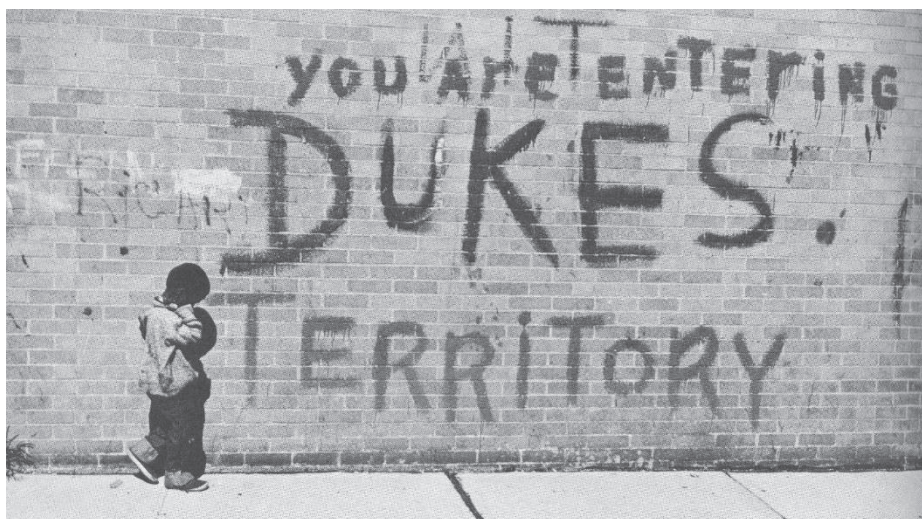 YOU ArE ENTEriNG
DUKES.
TERRiToRY